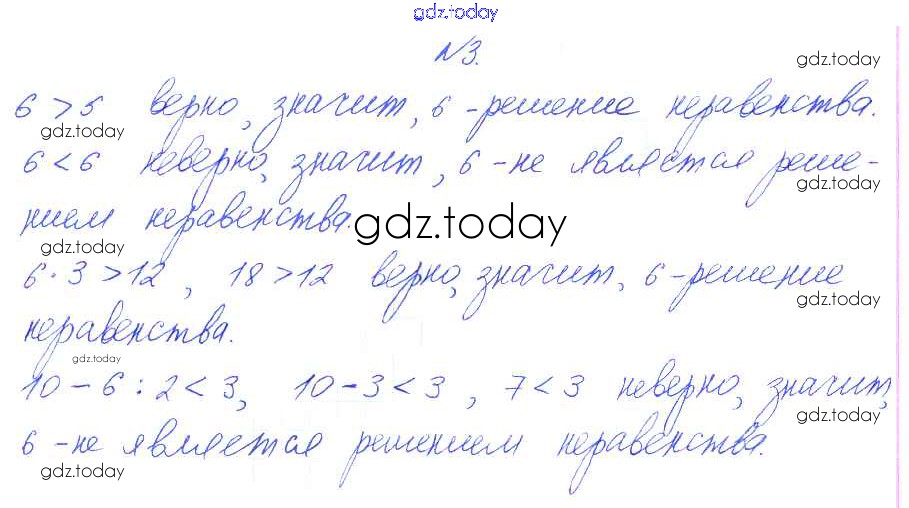 gdz.today
№3.
gdz.today
6 > 5 верно, значит, 6 - решение неравенства.
gdz.today
6 < 6 неверно, значит, 6 - не является реше-
gdz.today
нием неравенства.
gdz.today
gdz.today
6 · 3 > 12, 18 > 12 верно, значит, 6 - решение
gdz.today
неравенства.
gdz.today
10 - 6 : 2 < 3, 10 - 3 < 3, 7 < 3 неверно, значит,
gdz.today
6 - не является решением неравенства.
gdz.today
gdz.today